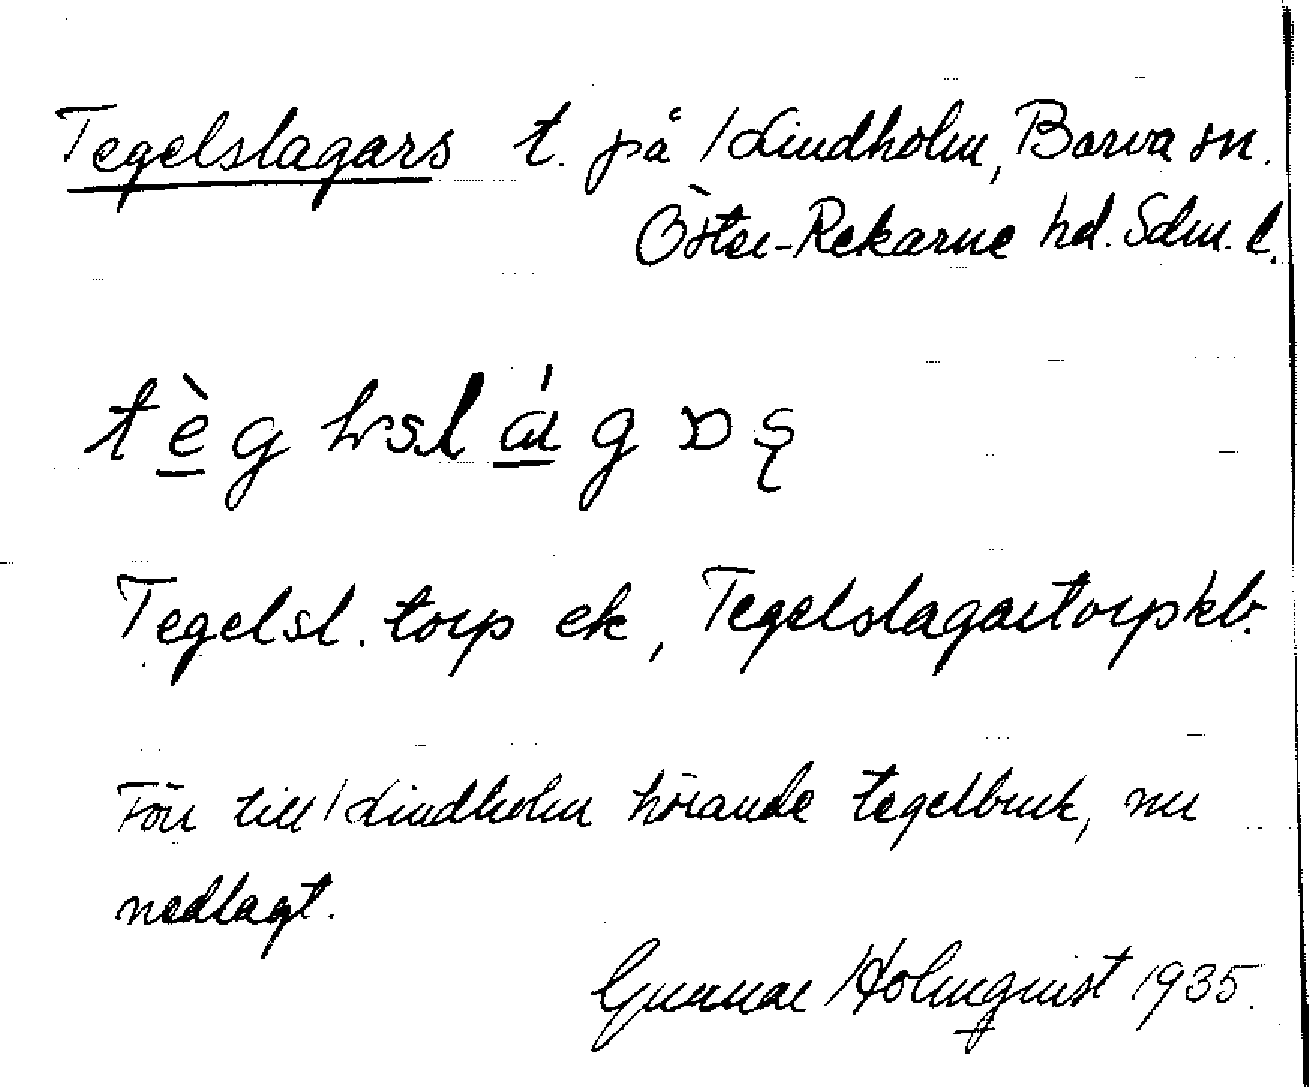 Tegelslagars t. på /Lindholm, Barva sn.
Öster-Rekarne hd. Sdm. l.
Tegelsl. torp ek, Tegelslagartorp kb.
Förr till /Lindholm hörande tegelbruk, nu
nedlagt.
Gunnar Holmquist 1935.